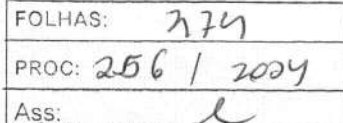 FOLHAS: 374
PROC: 256 / 2024
Ass: